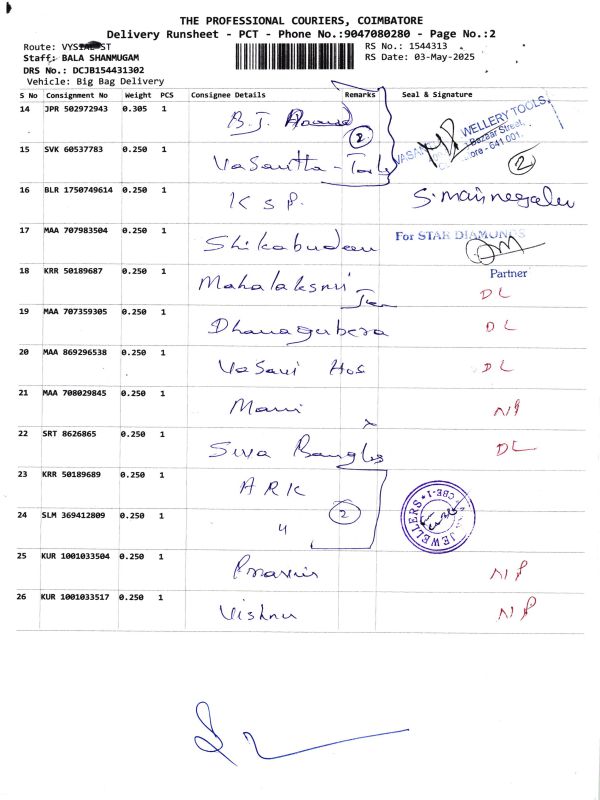 THE PROFESSIONAL COURIERS, COIMBATORE
Delivery Runsheet - PCT - Phone No.:9047080280 - Page No.:2
Route: VYSIAL ST
RS No.: 1544313
Staff: BALA SHANMUGAM
RS Date: 03-May-2025
DRS No.: DCJB154431302
Vehicle: Big Bag Delivery
S No Consignment No Weight PCS Consignee Details Remarks Seal & Signature
14 JPR 502972943 0.305 1 B.J.
2
WELLERY TOOLS,
Bazaar Street,
ore - 641 001.
2
15 SVK 60537783 0.250 1 Vasantha - Tools
16 BLR 1750749614 0.250 1 K S P.
17 MAA 707983504 0.250 1 Shikabudeen For STAR DIAMONDS
Partner
18 KRR 50189687 0.250 1 Mahalakshmi DL
19 MAA 707359305 0.250 1 Dhanagubera DL
20 MAA 869296538 0.250 1 Vasavi Hos DL
21 MAA 708029845 0.250 1 Mani NP
22 SRT 8626865 0.250 1 Siva Bangles DL
23 KRR 50189689 0.250 1 A R K
2
JEWELLERS * CBE-1 *
24 SLM 369412809 0.250 1 "
25 KUR 1001033504 0.250 1 Pravin NP
26 KUR 1001033517 0.250 1 Vishnu NP